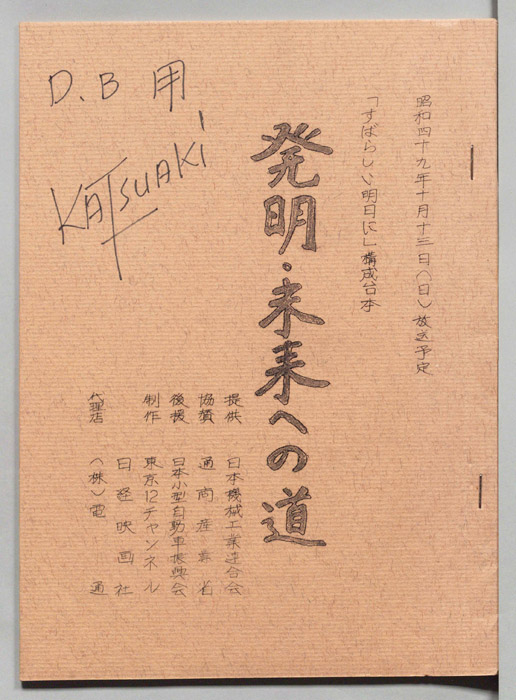 D.B用
KATSUAKI
昭和四十九年十月十三日(日)放送予定
「すばらしい明日に」構成台本
発明・未来への道
提供 日本機械工業連合会
協賛 通商産業省
後援 日本小型自動車振興会
制作 東京12チャンネル
日経映画社
代理店 (株)電通